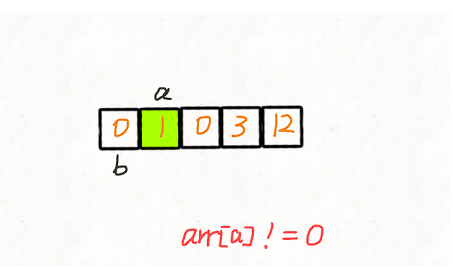 a
0 1 0 3 12
b
arr[a] != 0